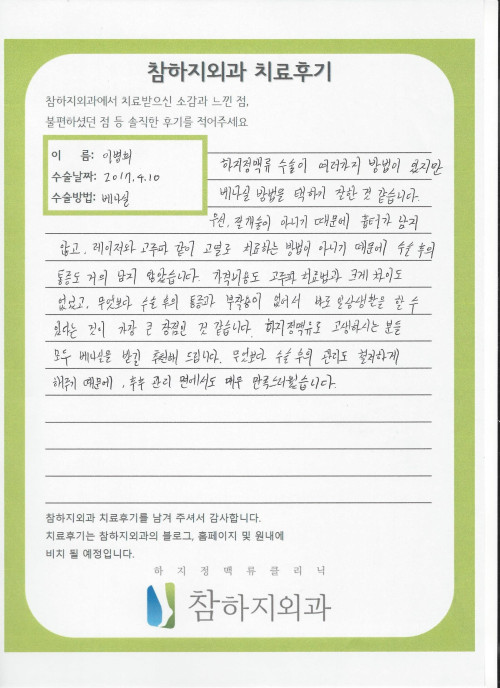 참하지외과 치료후기
참하지외과에서 치료받으신 소감과 느낀 점,
불편하셨던 점 등 솔직한 후기를 적어주세요
이 름: 이병희
수술날짜: 2017.4.10
수술방법: 베나실
하지정맥류 수술이 여러가지 방법이 있지만
베나실 방법을 택하기 잘한 것 같습니다.
우선, 절개술이 아니기 때문에 흉터가 남지
않고, 레이저와 고주파 같이 고열로 치료하는 방법이 아니기 때문에 수술 후의
통증도 거의 남지 않았습니다. 가격비용도 고주파 치료법과 크게 차이도
없었고, 무엇보다 수술 후의 통증과 부작용이 없어서 바로 일상생활을 할 수
있다는 것이 가장 큰 장점인 것 같습니다. 하지정맥류로 고생하시는 분들
모두 베나실을 받길 추천해 드립니다. 무엇보다 수술 후의 관리도 철저하게
해주기 때문에, 후후 관리 면에서도 매우 만족스러웠습니다.
참하지외과 치료후기를 남겨 주셔서 감사합니다.
치료후기는 참하지외과의 블로그, 홈페이지 및 원내에
비치 될 예정입니다.
하지정맥류클리닉
참하지외과